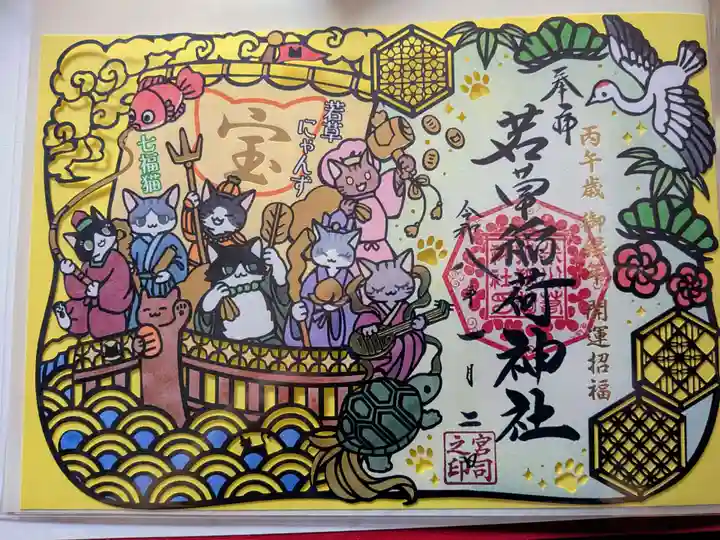 奉拝
丙午歳 御参拝 開運招福
若草稲荷神社
令和八年一月二
宮司
之印
若草
にゃんず
宝
七福猫